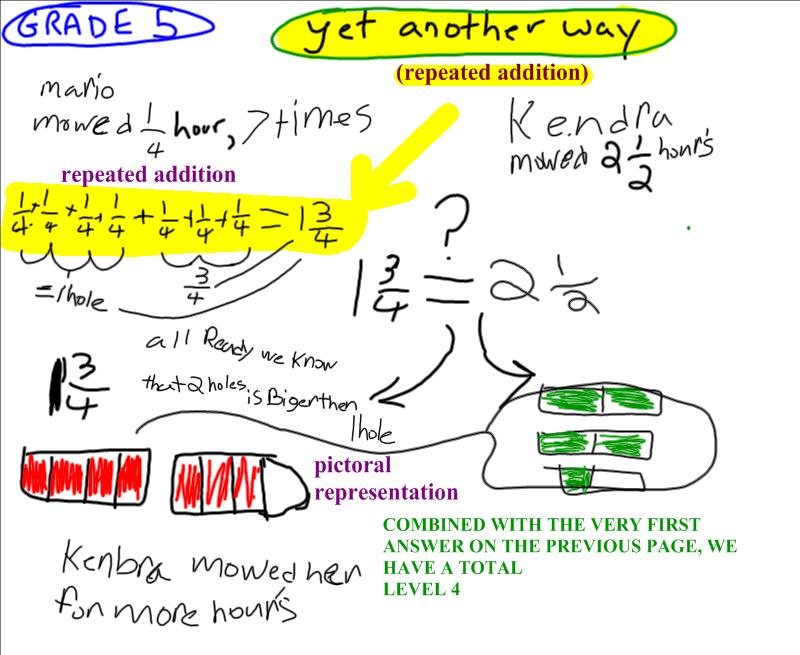 GRADE 5
yet another way
(repeated addition)
mario
mowed 1/4 hour, 7 times
Kendra
mowed 2 1/2 hour's
repeated addition
1/4+1/4+1/4+1/4+1/4+1/4+1/4=1 3/4
=1hole
3/4
?
1 3/4=2 1/2
all Ready we Know
that 2 holes is Biger then
1hole
1 3/4
pictoral
representation
COMBINED WITH THE VERY FIRST
ANSWER ON THE PREVIOUS PAGE, WE
HAVE A TOTAL
LEVEL 4
Kenbra mowed her
for more hour's